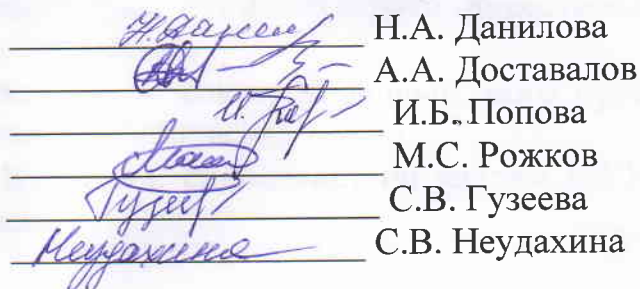 Н.А. Данилова
А.А. Доставалов
И.Б. Попова
М.С. Рожков
С.В. Гузеева
Неудахина С.В. Неудахина